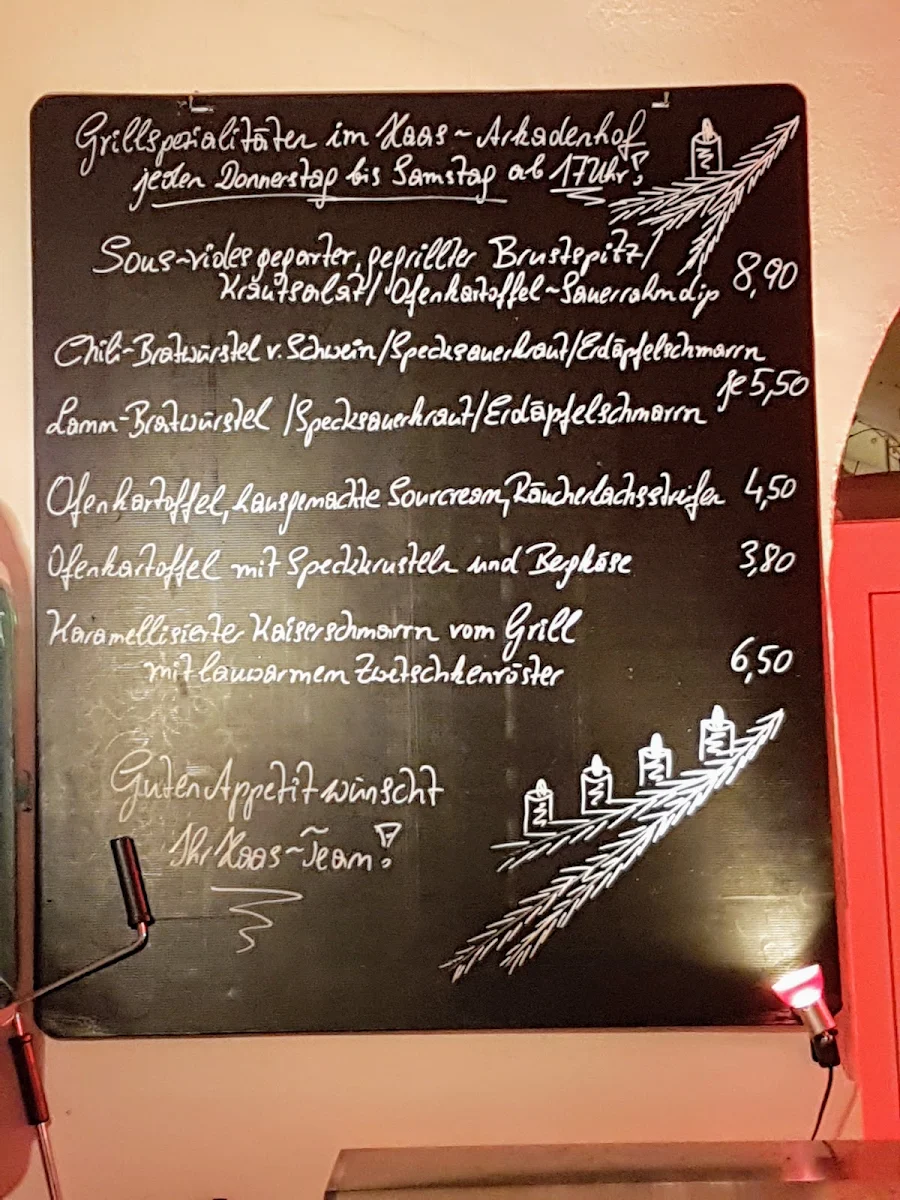 Grillspezialitäten im Haas~Arkadenhof
jeden Donnerstag bis Samstag ab 17Uhr!
Sous-vides gegarter, gegrillter Brustspitz/
Krautsalat/Ofenkartoffel~Sauerrahmdip 8,90
Chili-Bratwürstel v. Schwein/Specksauerkraut/Erdäpfelschmarrn
je 5,50
Lamm-Bratwürstel /Specksauerkraut/Erdäpfelschmarrn
Ofenkartoffel, hausgemachte Sourcream, Räucherlachsstreifen 4,50
Ofenkartoffel mit Speckkrusteln und Bergkäse 3,80
Karamellisierter Kaiserschmarrn vom Grill
mit lauwarmem Zwetschkenröster 6,50
Guten Appetit wünscht
Ihr Haas~Team!